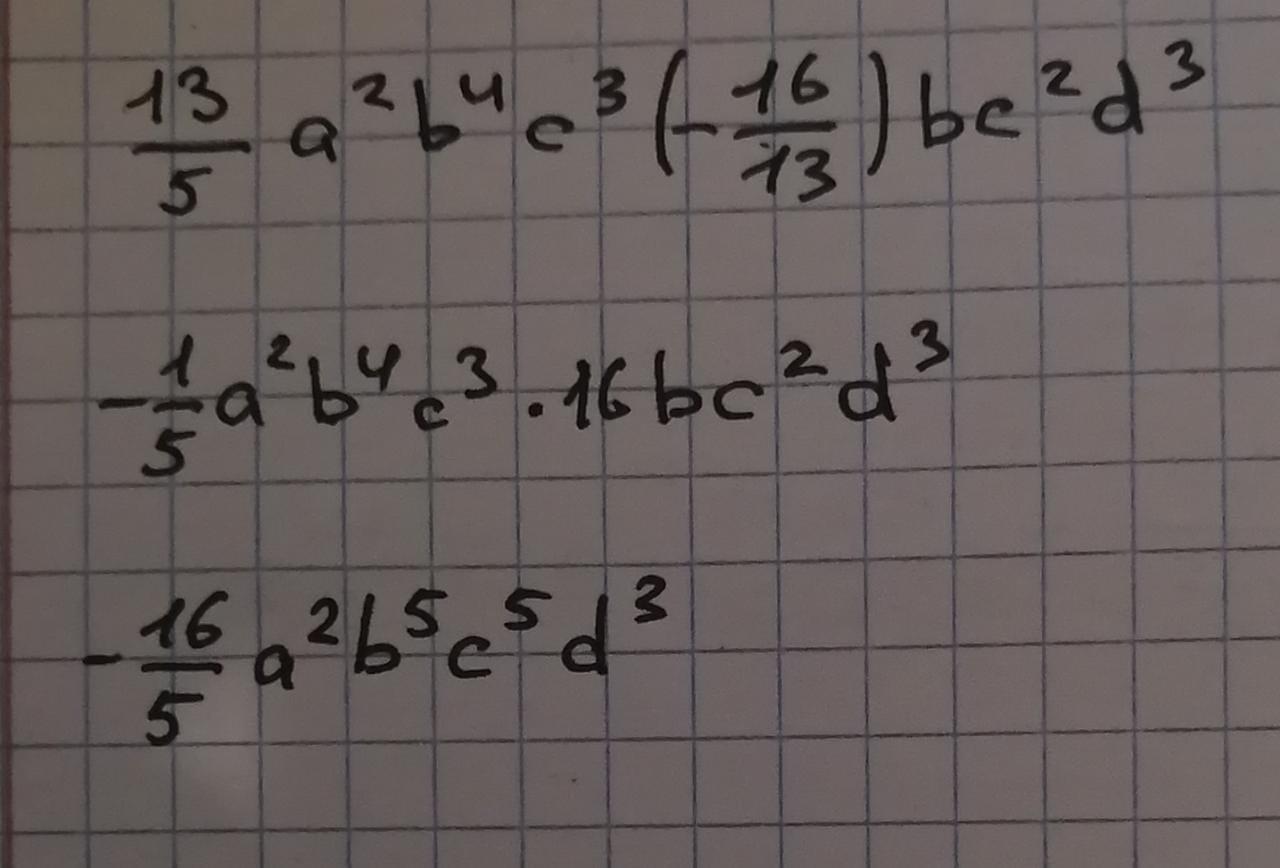 13/5 a²b⁴c³(-16/13)bc²d³
-1/5 a²b⁴c³·16bc²d³
-16/5 a²b⁵c⁵d³